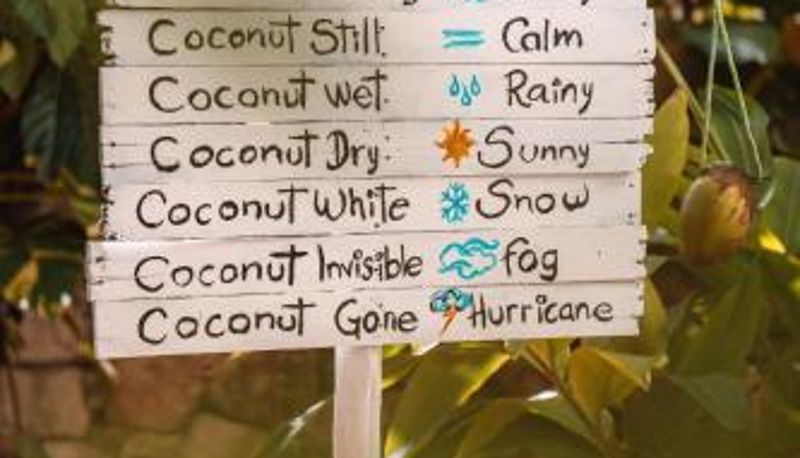 Coconut Still Calm
Coconut Wet Rainy
Coconut Dry Sunny
Coconut White Snow
Coconut Invisible fog
Coconut Gone Hurricane